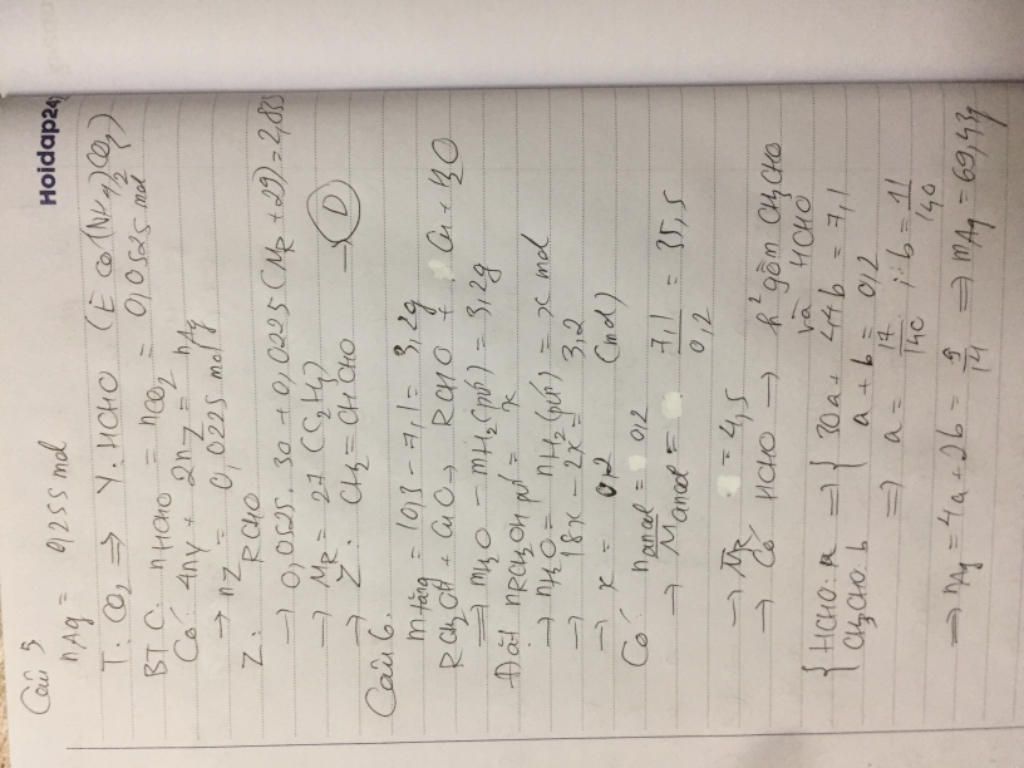 Hoidap247
Câu 5
nAg = 0,255 mol
T: CO2 ⇒ Y: HCHO (E có (NH4)2CO3)
BTC: nHCHO = nCO2 = 0,0525 mol
Có: 4nY + 2nZ = nAg
→ nZ = 0,0225 mol
Z: RCHO
→ 0,0525.30 + 0,0225(MR + 29) = 2,835
→ MR = 27 (C2H3)
→ Z: CH2=CHCHO → D
Câu 6.
m tăng = 10,3 - 7,1 = 3,2g
RCH2OH + CuO → RCHO + Cu + H2O
⇒ mH2O - mH2(pứ) = 3,2g
Đặt nRCH2OH pứ = x
→ nH2O = nH2(pứ) = x mol
→ 18x - 2x = 3,2
→ x = 0,2 (mol)
Có: nancol = 0,2
→ M ancol = 7,1/0,2 = 35,5
→ MR = 4,5
→ Có HCHO → h² gồm CH3CHO
và HCHO
{HCHO: a ⇒ {30a + 44b = 7,1
CH3CHO: b a + b = 0,2
⇒ a = 17/140 ; b = 11/140
⇒ nAg = 4a + 2b = 9/14 ⇒ mAg = 69,43g